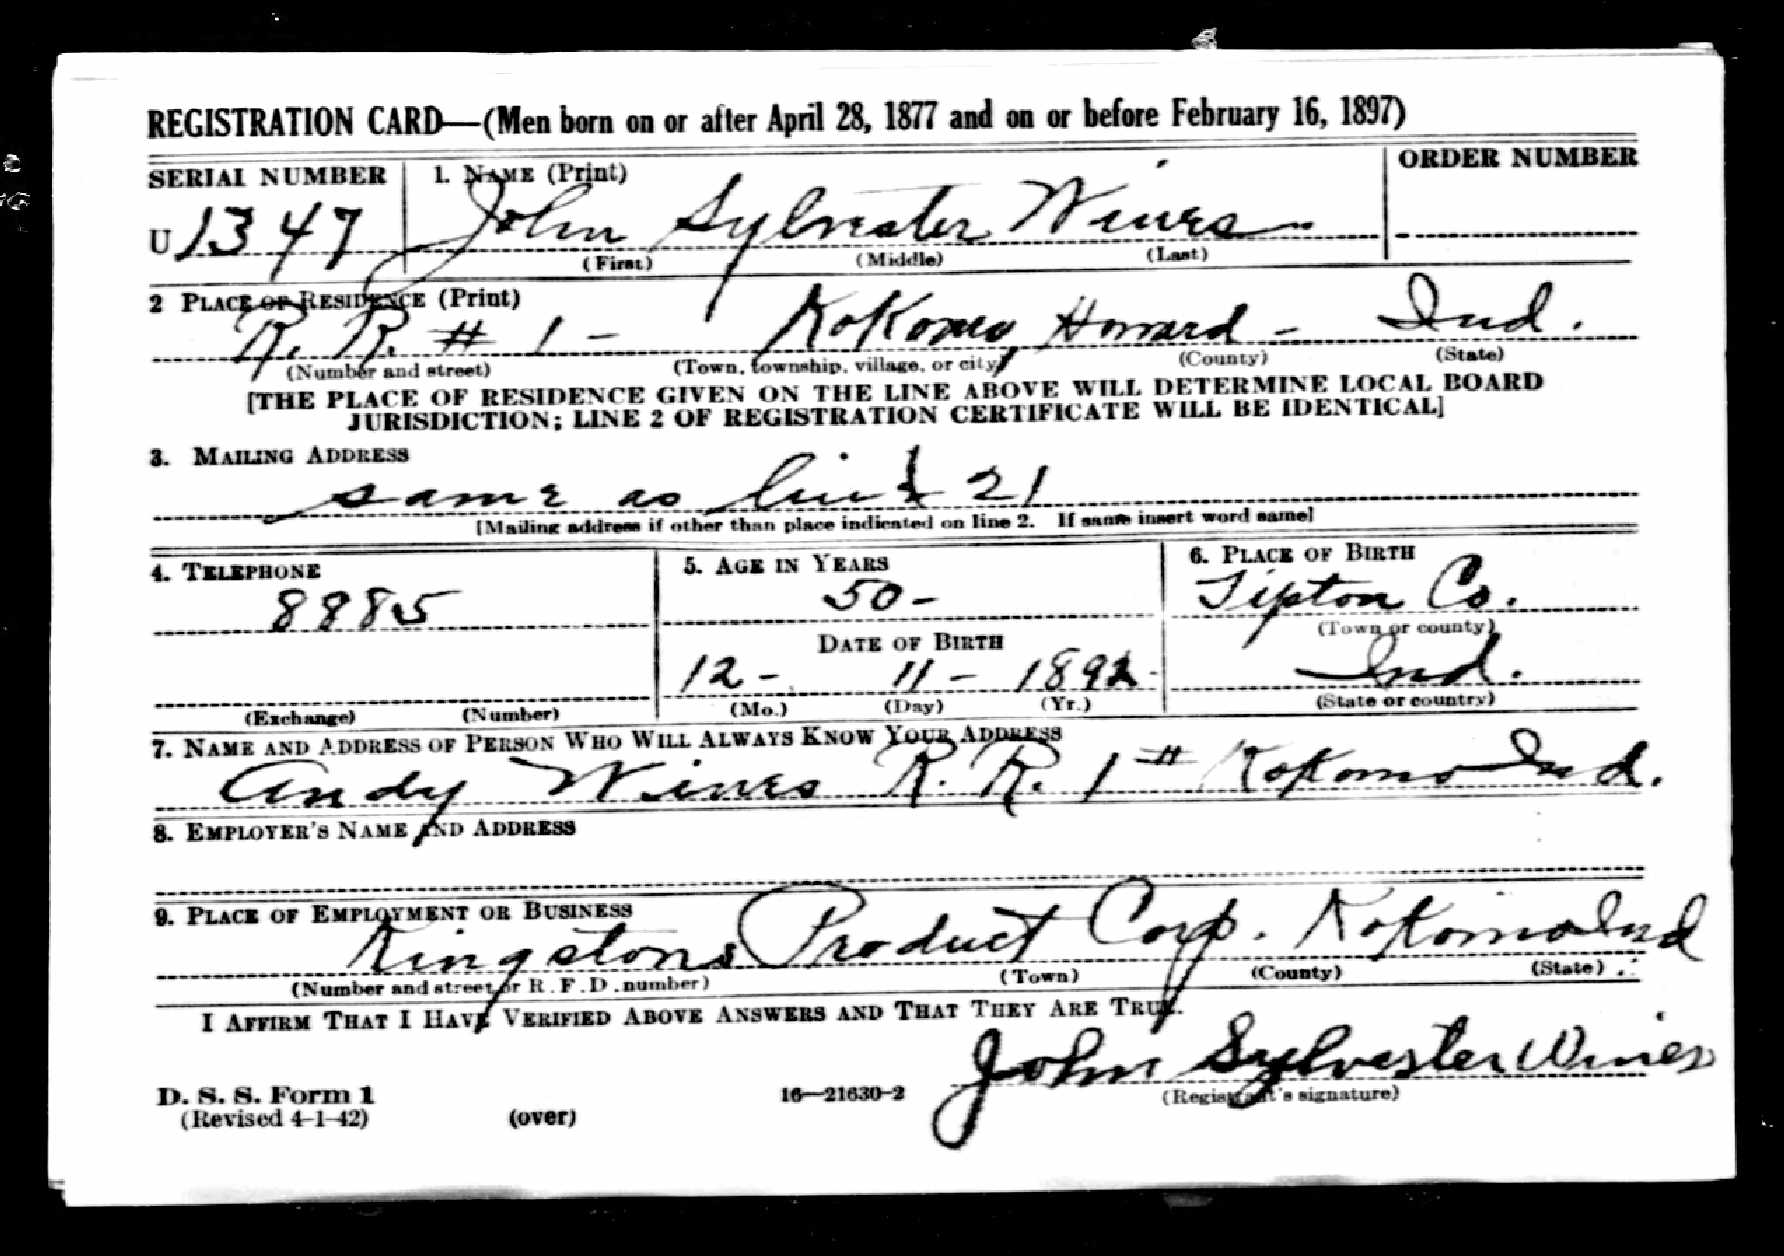 REGISTRATION CARD—(Men born on or after April 28, 1877 and on or before February 16, 1897)
SERIAL NUMBER 1. NAME (Print) ORDER NUMBER
U 1347 John Sylvester Wines
(First) (Middle) (Last)
2 PLACE OF RESIDENCE (Print)
R. R. # 1 - Kokomo, Howard - Ind.
(Number and street) (Town, township, village, or city) (County) (State)
[THE PLACE OF RESIDENCE GIVEN ON THE LINE ABOVE WILL DETERMINE LOCAL BOARD
JURISDICTION; LINE 2 OF REGISTRATION CERTIFICATE WILL BE IDENTICAL]
3. MAILING ADDRESS
same as line 21
[Mailing address if other than place indicated on line 2. If same insert word same]
4. TELEPHONE 5. AGE IN YEARS 6. PLACE OF BIRTH
8885 50- Tipton Co.
(Town or county)
DATE OF BIRTH
12- 11- 1892 Ind.
(Exchange) (Number) (Mo.) (Day) (Yr.) (State or country)
7. NAME AND ADDRESS OF PERSON WHO WILL ALWAYS KNOW YOUR ADDRESS
Andy Wines R. R. 1# Kokomo Ind.
8. EMPLOYER'S NAME AND ADDRESS
9. PLACE OF EMPLOYMENT OR BUSINESS
Kingstons Product Corp. Kokomo Ind
(Number and street or R. F. D. number) (Town) (County) (State)
I AFFIRM THAT I HAVE VERIFIED ABOVE ANSWERS AND THAT THEY ARE TRUE.
John Sylvester Wines
D. S. S. Form 1 16—21630-2 (Registrant's signature)
(Revised 4-1-42) (over)